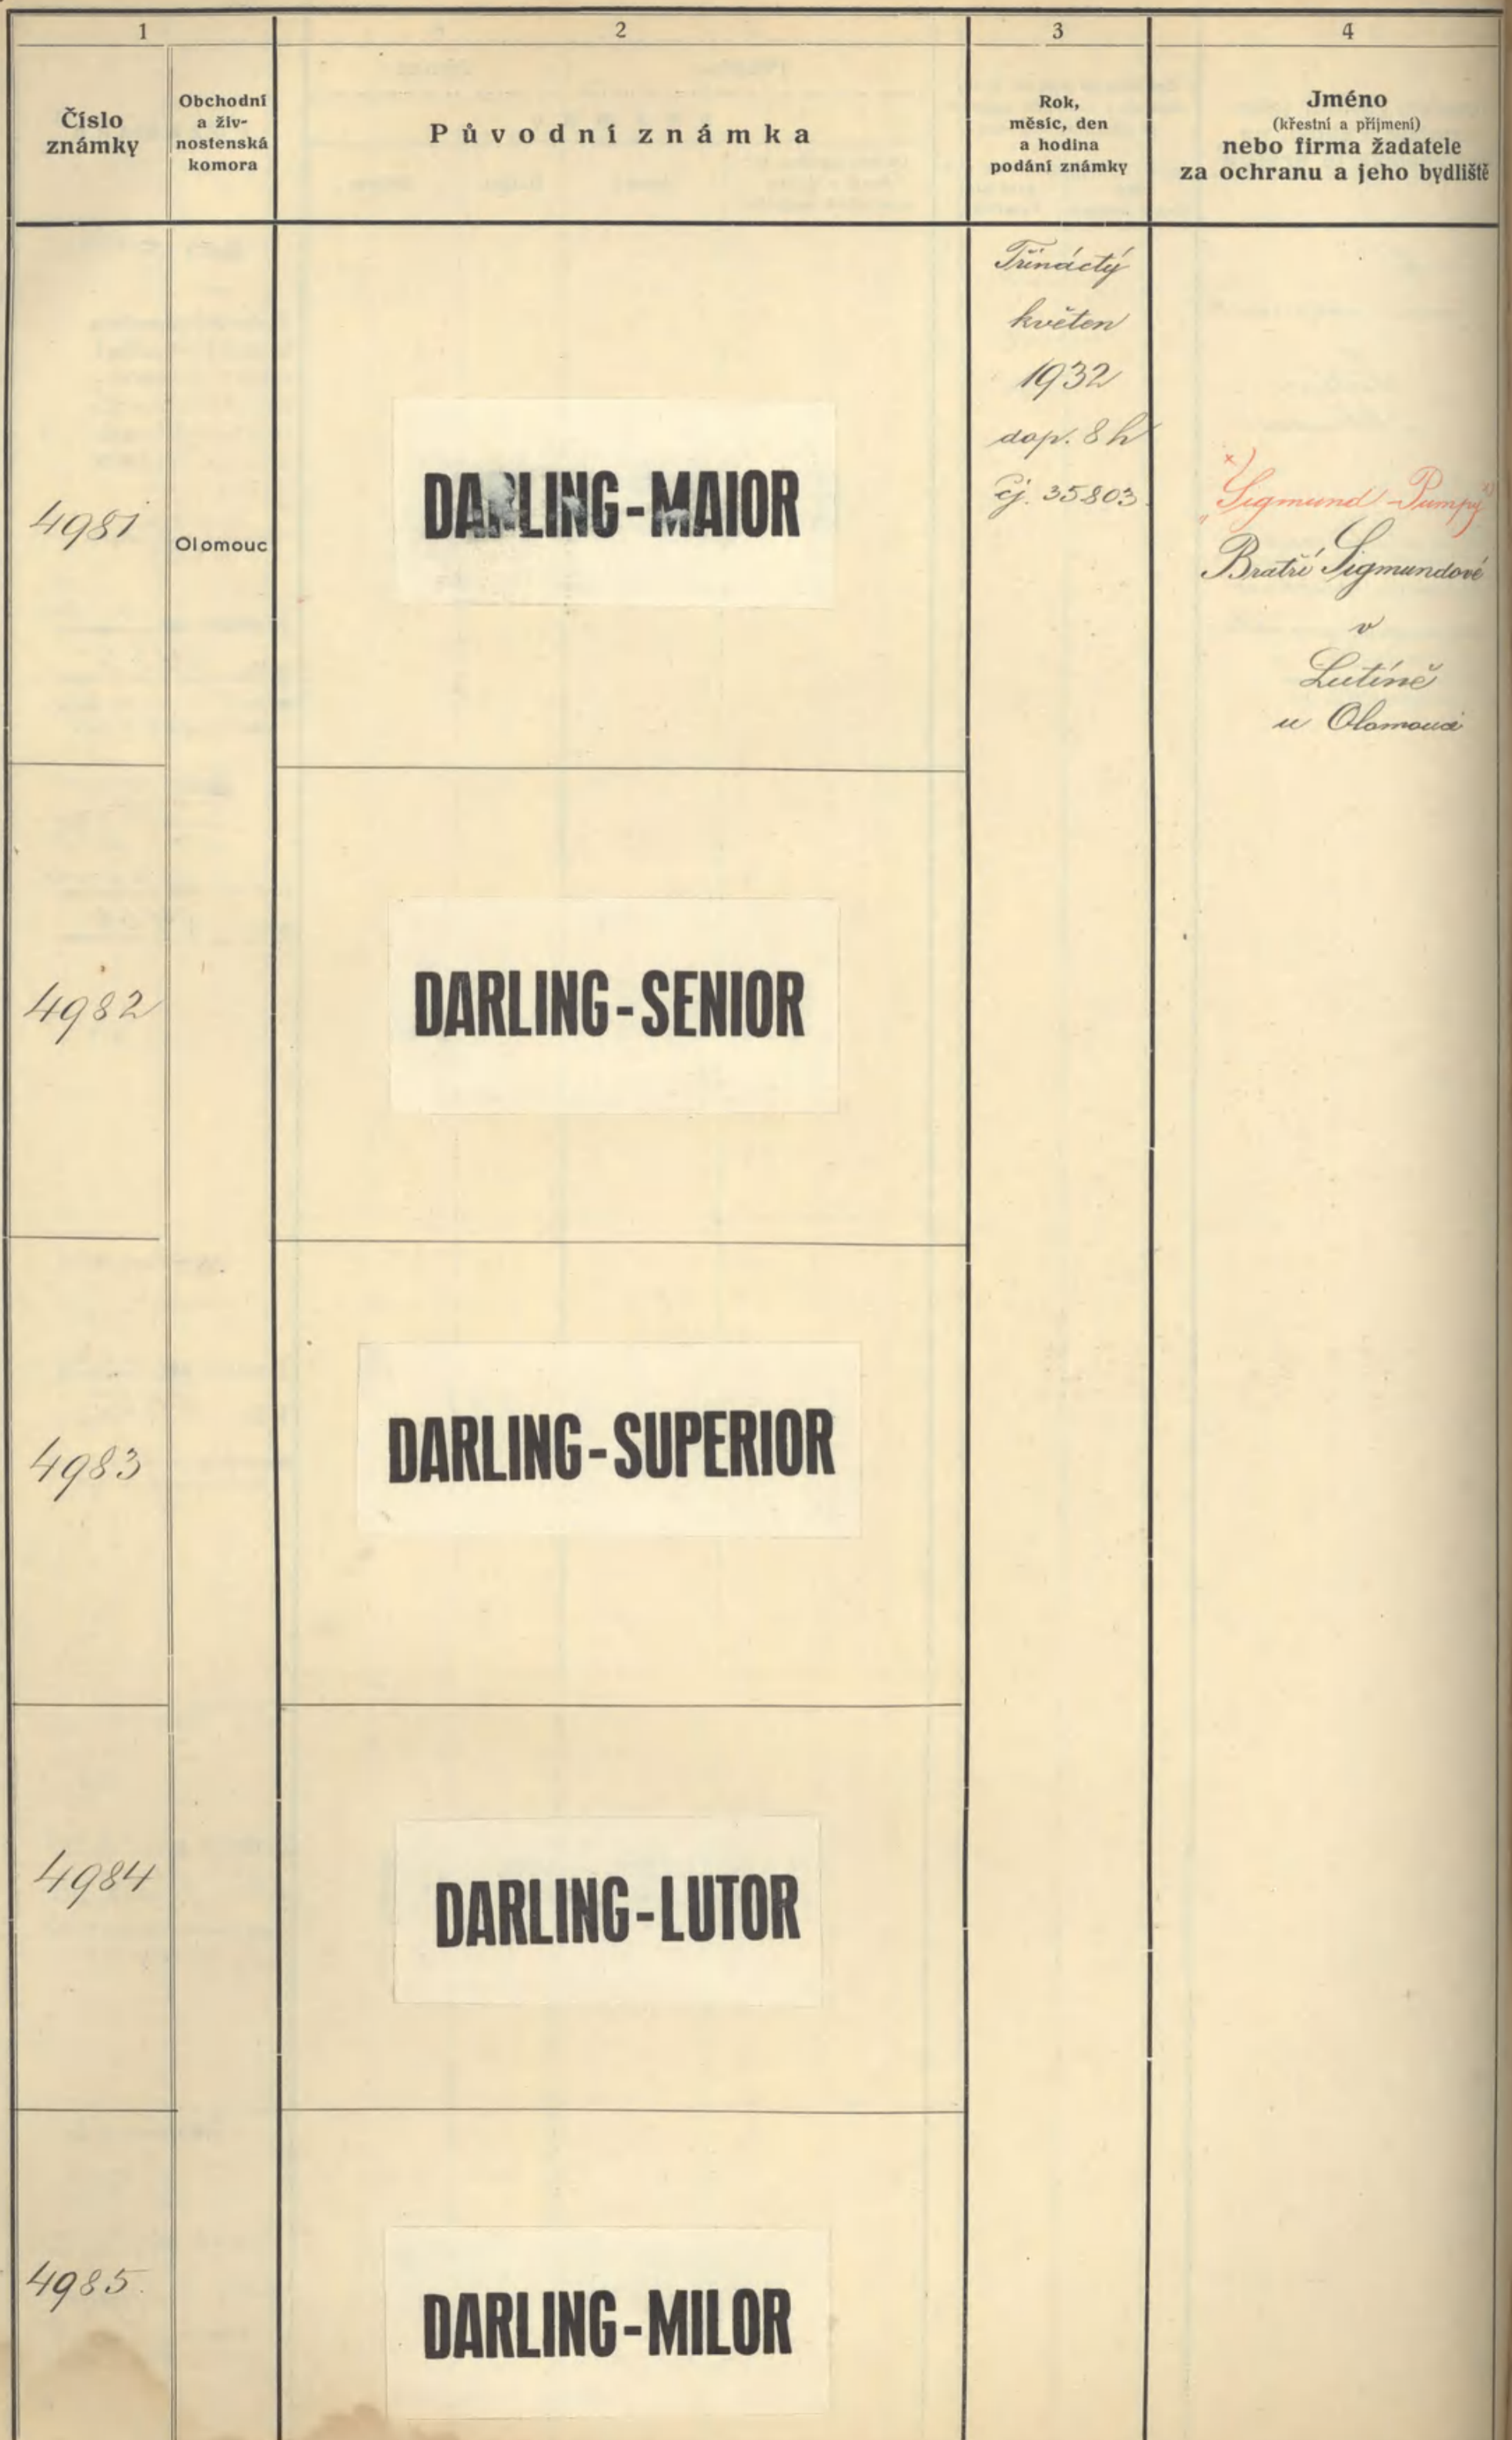 1
2
3
4
Číslo
známky
Obchodní
a živ-
nostenská
komora
Původní známka
Rok,
měsíc, den
a hodina
podání známky
Jméno
(křestní a příjmení)
nebo firma žadatele
za ochranu a jeho bydliště
4981
Olomouc
DARLING-MAIOR
Třináctý
květen
1932
dop. 8 h
čj. 35803
x)
"Sigmund-Pumpy"
Bratří Sigmundové
v
Lutíně
u Olomouce
4982
DARLING-SENIOR
4983
DARLING-SUPERIOR
4984
DARLING-LUTOR
4985.
DARLING-MILOR